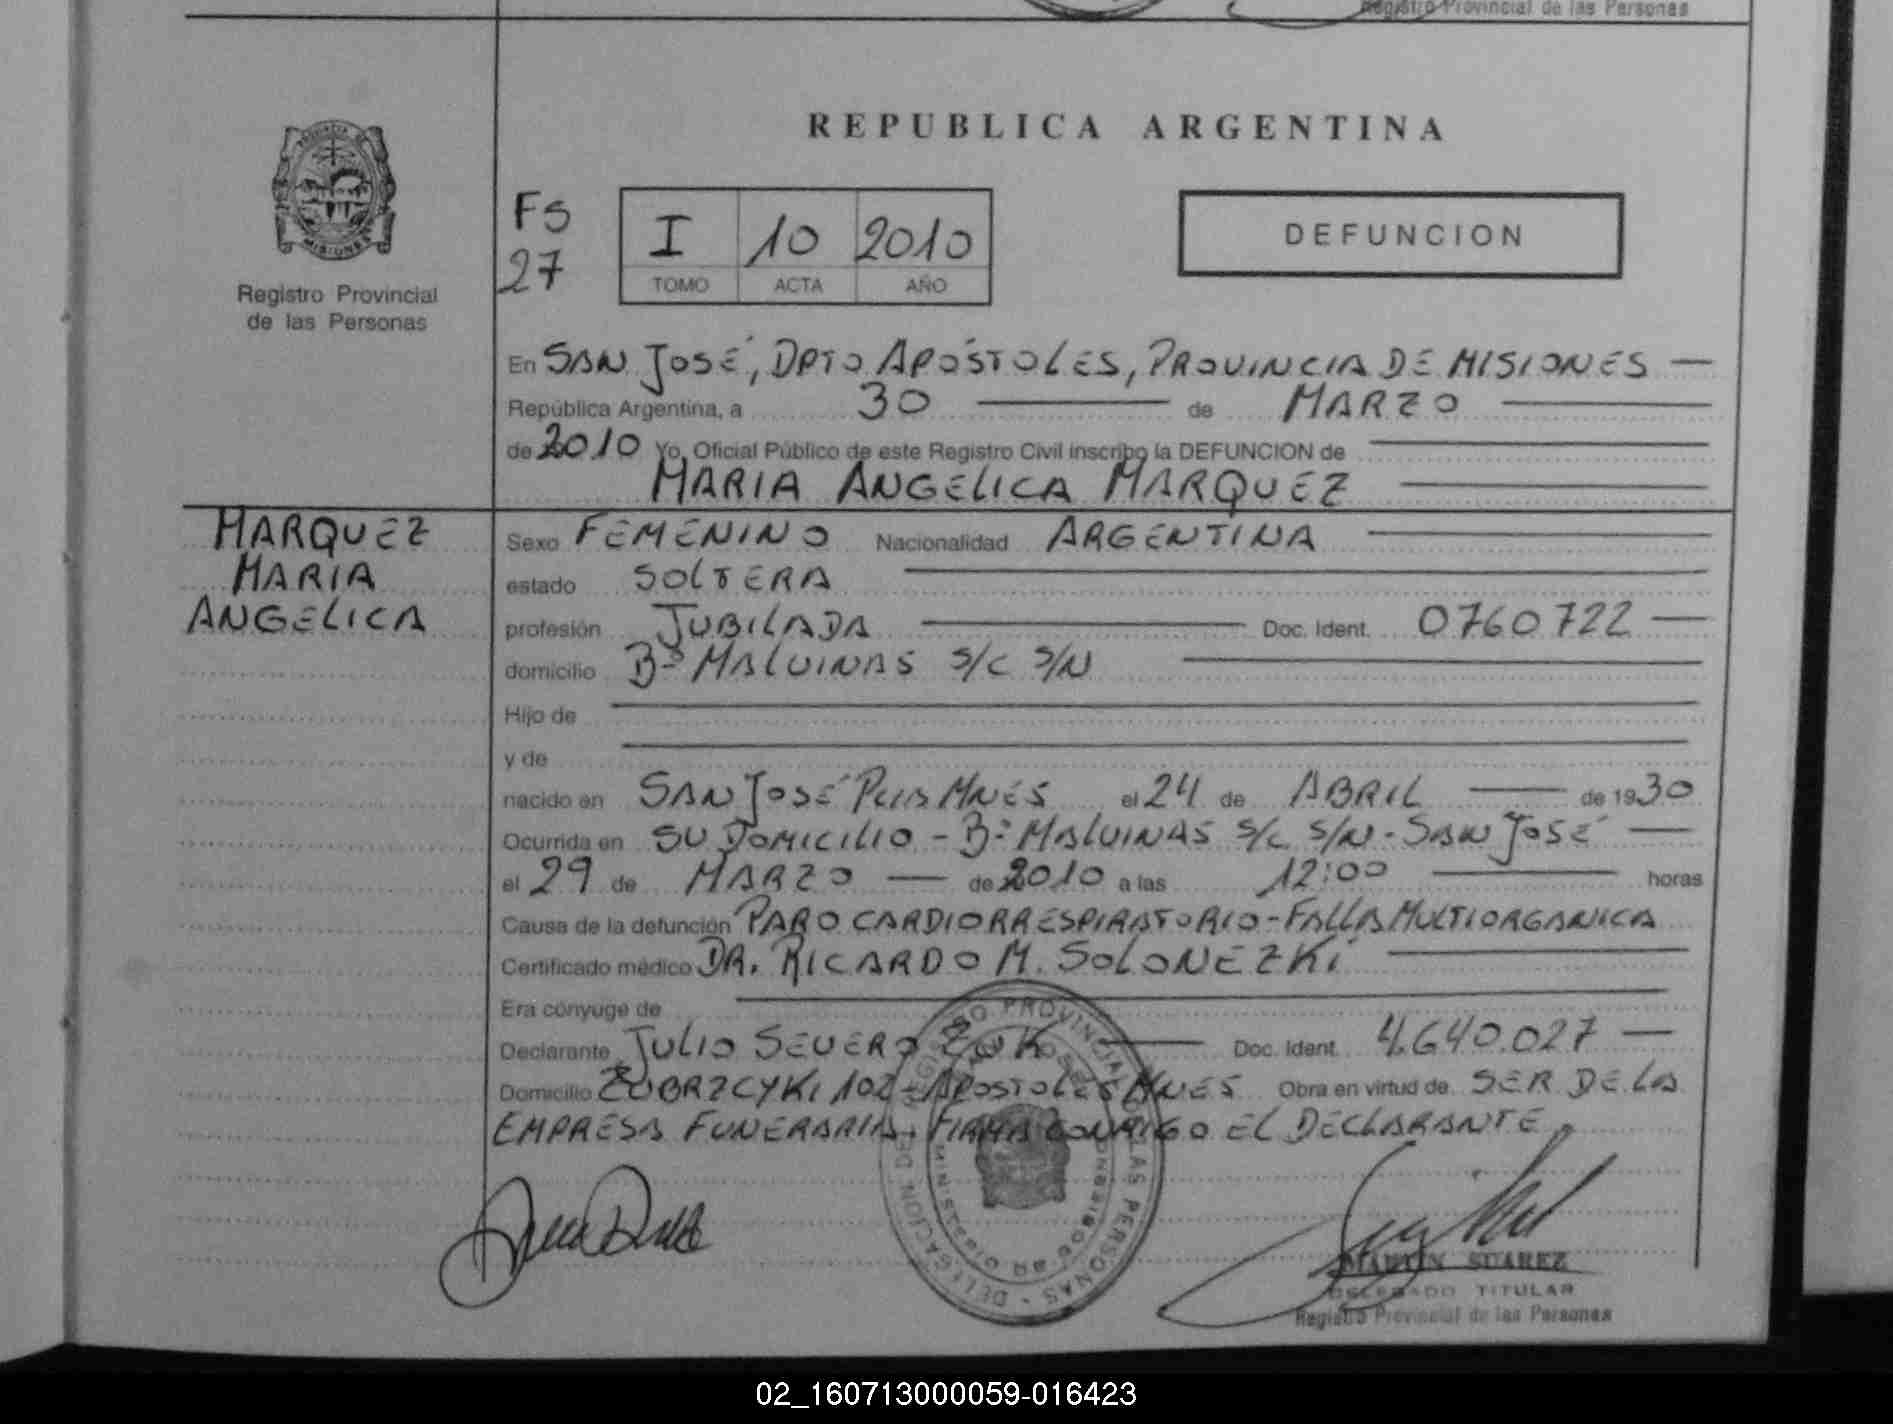 Registro Provincial de las Personas
PROVINCIA DE
MISIONES
Registro Provincial
de las Personas
REPUBLICA ARGENTINA
FS
27
I 10 2010
TOMO ACTA AÑO
DEFUNCION
En SAN JOSÉ, DPTO APÓSTOLES, PROVINCIA DE MISIONES —
República Argentina, a 30 — de MARZO —
de 2010 Yo, Oficial Público de este Registro Civil inscribo la DEFUNCION de —
MARIA ANGELICA MARQUEZ —
MARQUEZ
MARIA
ANGELICA
Sexo FEMENINO Nacionalidad ARGENTINA —
estado SOLTERA —
profesión JUBILADA — Doc. Ident. 0760722 —
domicilio Bº MALVINAS S/C S/N —
Hijo de —
y de —
nacido en SAN JOSÉ PCIA MNES el 24 de ABRIL — de 1930
Ocurrida en SU DOMICILIO - Bº MALVINAS S/C S/N - SAN JOSÉ —
el 29 de MARZO — de 2010 a las 12:00 — horas
Causa de la defunción PARO CARDIORRESPIRATORIO - FALLA MULTIORGANICA
Certificado médico DR. RICARDO M. SOLONEZKI —
Era cónyuge de —
Declarante JULIO SEVERO ZUK — Doc. Ident. 4.640.027 —
Domicilio ZUBRZCYKI 102 - APOSTOLES MNES Obra en virtud de SER DE LA
EMPRESA FUNERARIA. FIRMA CONMIGO EL DECLARANTE.
MARTIN SUAREZ
DELEGADO TITULAR
Registro Provincial de las Personas
02_160713000059-016423